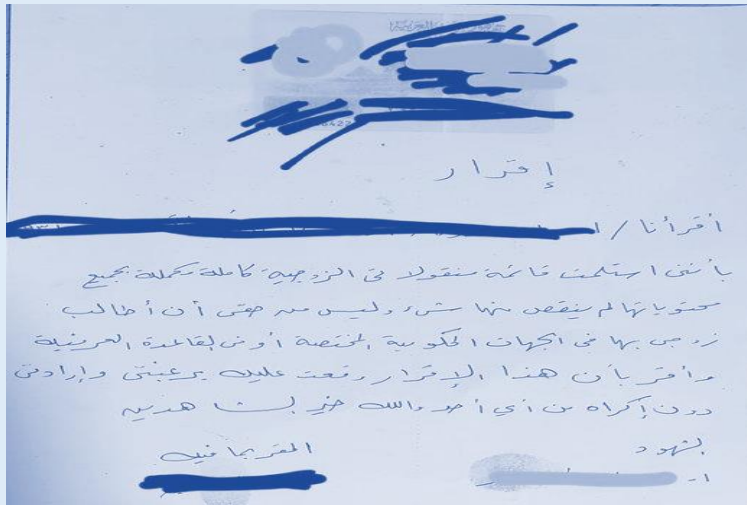 إقرار
أقر أنا /
بأننى استلمت قائمة منقولاتى الزوجية كاملة مكملة بجميع
محتوياتها لم ينقص منها شىء وليس من حقى أن أطالب
زوجى بها فى الجهات الحكومية المختصة أو فى القاعدة العرفية
وأقر بأن هذا الإقرار وقعت عليه برغبتى وإرادتى
دون إكراه من أي أحد والله خير الشاهدين
الشهود
المقر بما فيه